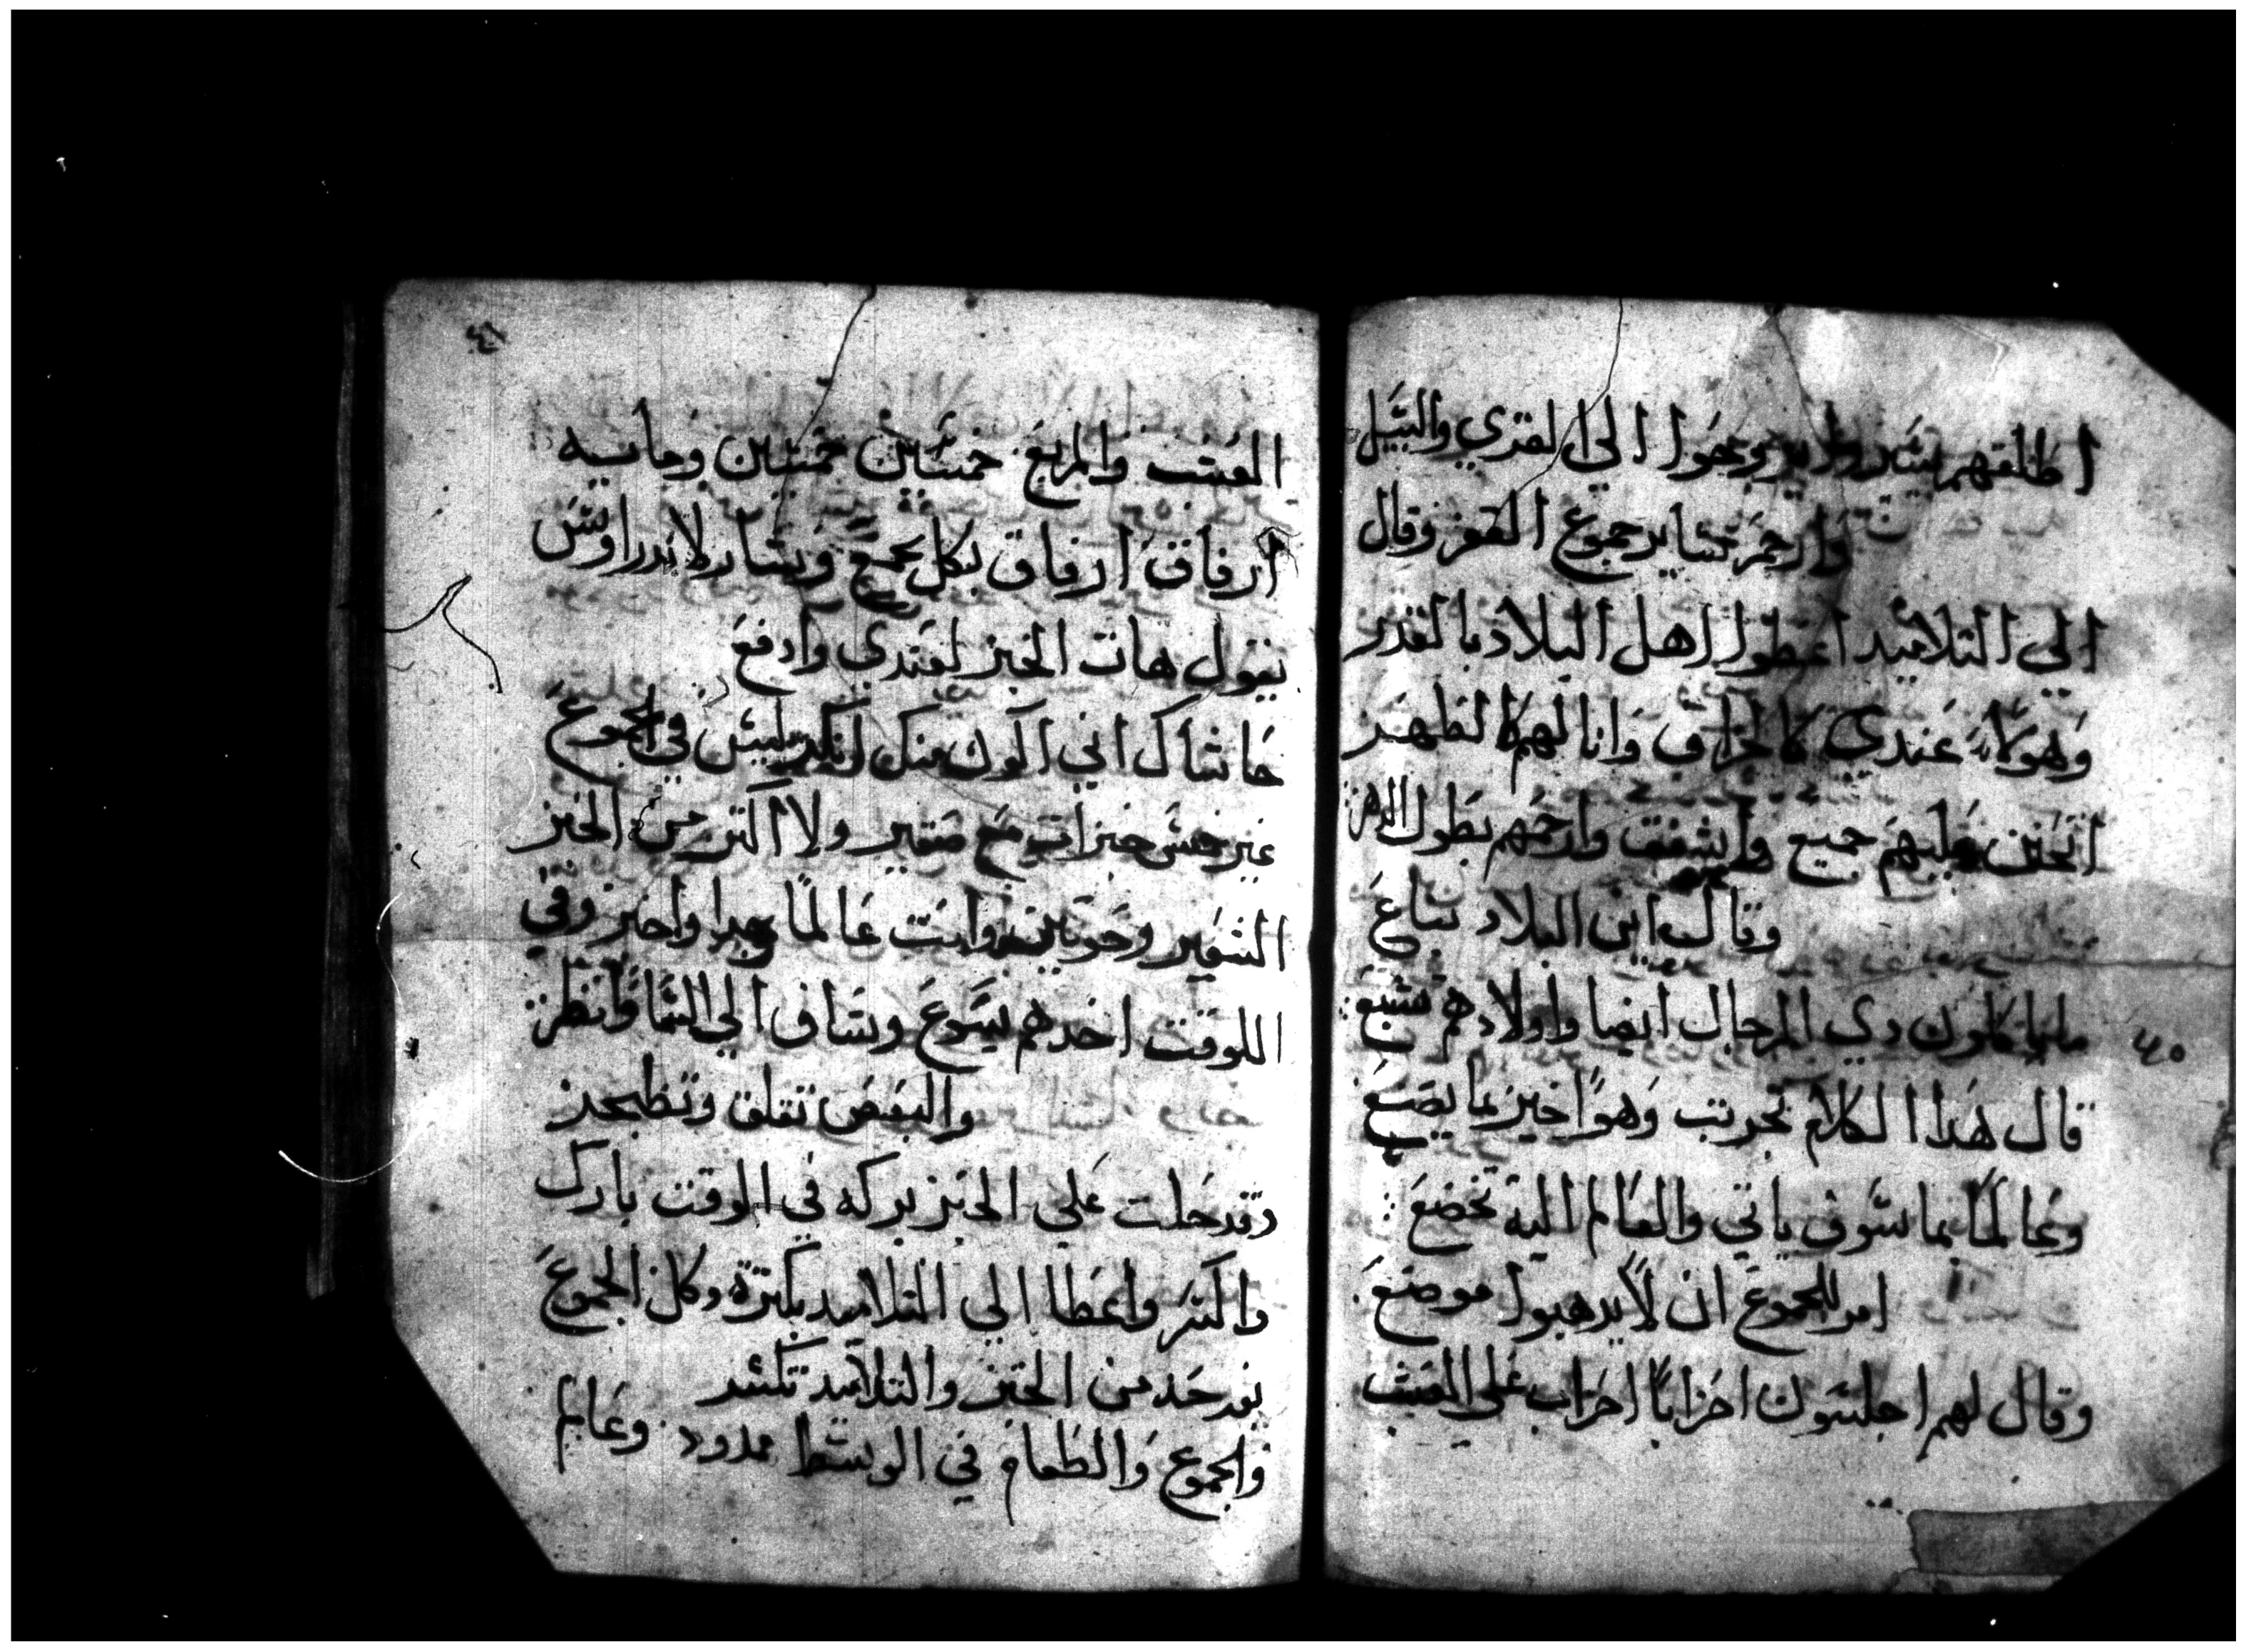 اطلقهم يسيروا يروحوا الي القري والسبيل
وارحم سايرجموع القفز وقال
الي التلاميد اعطوا اهل البلاد بالقدر
وهولاء عندي كالخراف وانا لهم كالظهر
اتحنن عليهم جميع واشفق وارحمهم بطول الدهر
وقال اين البلاد نبتاع
ماياكلون دي الرجال ايضا واولادهم تشبع
٤٥
قال هدا الكلام تجريب وهوا خير بما يصنع
وعالما بما سوف ياتي والعالم اليه تخضع
امر للجموع ان لا يدهبوا موضع
وقال لهم اجلسون احزابا احزاب علي العشب
٤٦
العشب والمربع خمسين خمسين وماييه
ارفاق ارفاق بكل مجمع وبشاير لاندراوش
يقول هات الخبز لعندي وادفع
حاشاك اني اكون منك ليس في الجموع
غير خمس خبزات مع صغير ولا اكتر من الخبز
الشعير وحوتين وانت عالما واخبر وفي
اللوقت اخدهم يسوع وشاف الي السما وانظر
والبعض تقلق وتطبحد
وقد حلت علي الخبز بركه في الوقت بارك
واكتر واعطا الي التلاميد بكترة وكل الجموع
يفرحد من الخبز والتلاميد تكسر
والجموع والطعام في الوسط ممدود وعالم